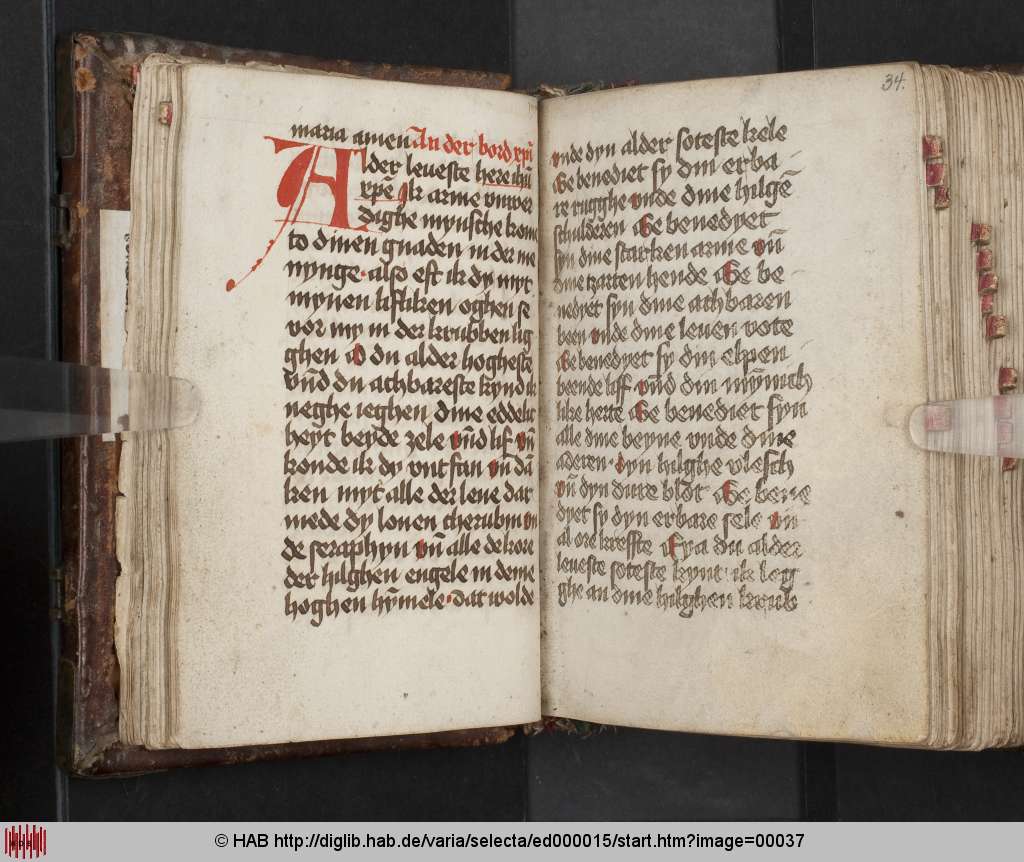 maria amen An der bord xpī
Alder leveste here ihū
xpē Ik arme vnwer
dighe mynsche kome
to dinen gnaden in der me
nynge · also eft ik dy myt
mynen lifliken oghen se
vor my in der krubben lig
ghen O du alder hogheste
vnd du achbareste kynd ik
neghe ieghen dine eddelic
heyt beyde zele vnd lif vn̄
konde ik dy vntfan vn̄ dā
ken myt alle der leue dat
mede dy louen cherubin vn
de seraphyn vn̄ alle de kore
der hilghen engele in deme
hoghen hȳmele · Dat wolde
34.
vnde dyn alder soteste kele
Ghe benediet sy din erba
re rugghe vnde dine hilgē
schulderen Ghe benedyet
syn dine starken arme vn̄
dine tzarten hende Ghe be
nedyet syn dine achbaren
been vnde dine leuen vote
Ghe benedyet sy din elpen
beende liff · vn̄d din mȳnich
like herte Ghe benediet syn
alle dine beyne vnde dine
aderen · dyn hilghe vlesch
vn̄ dyn dure blot Ghe bene
dyet sy dyn erbare sele vn̄
al ore kreffte Eya du alder
leueste soteste kynt · ik leg
ghe an dine hilghen krub
© HAB http://diglib.hab.de/varia/selecta/ed000015/start.htm?image=00037